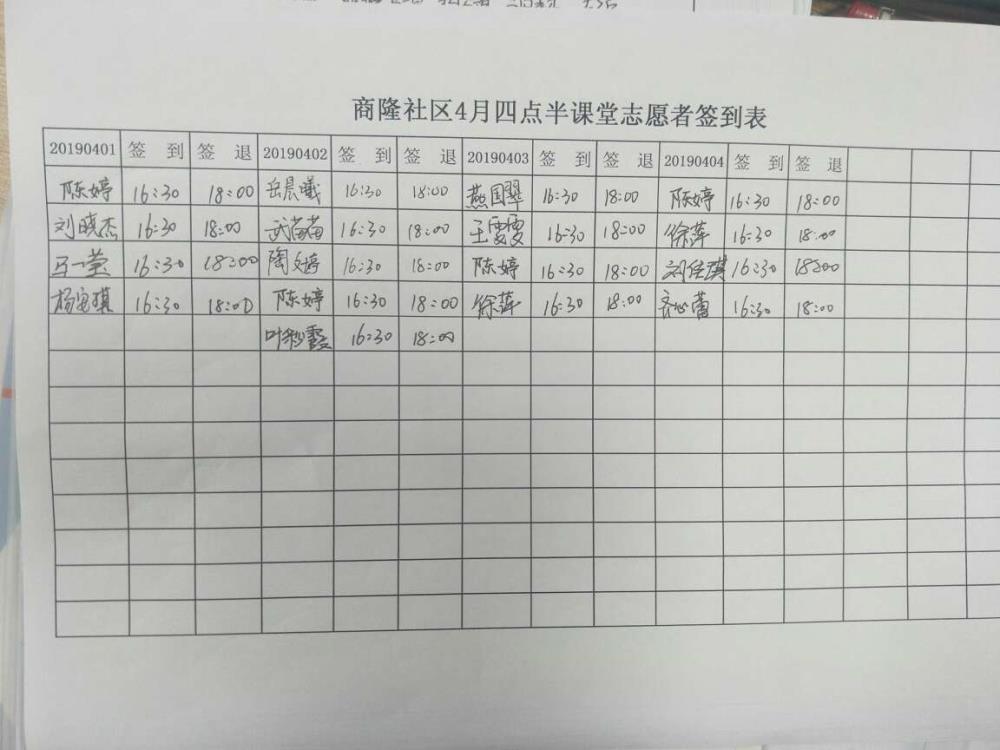 商隆社区4月四点半课堂志愿者签到表
20190401 签 到 签 退 20190402 签 到 签 退 20190403 签 到 签 退 20190404 签 到 签 退
陈婷 16:30 18:00 岳晨曦 16:30 18:00 燕国翠 16:30 18:00 陈婷 16:30 18:00
刘晓杰 16:30 18:00 武苗苗 16:30 18:00 王雯雯 16:30 18:00 徐萍 16:30 18:00
16:30 18:00 陶文婷 16:30 18:00 陈婷 16:30 18:00 刘佳琪 16:30 18:00
16:30 18:00 陈婷 16:30 18:00 徐萍 16:30 18:00 齐心蕾 16:30 18:00
16:30 18:00